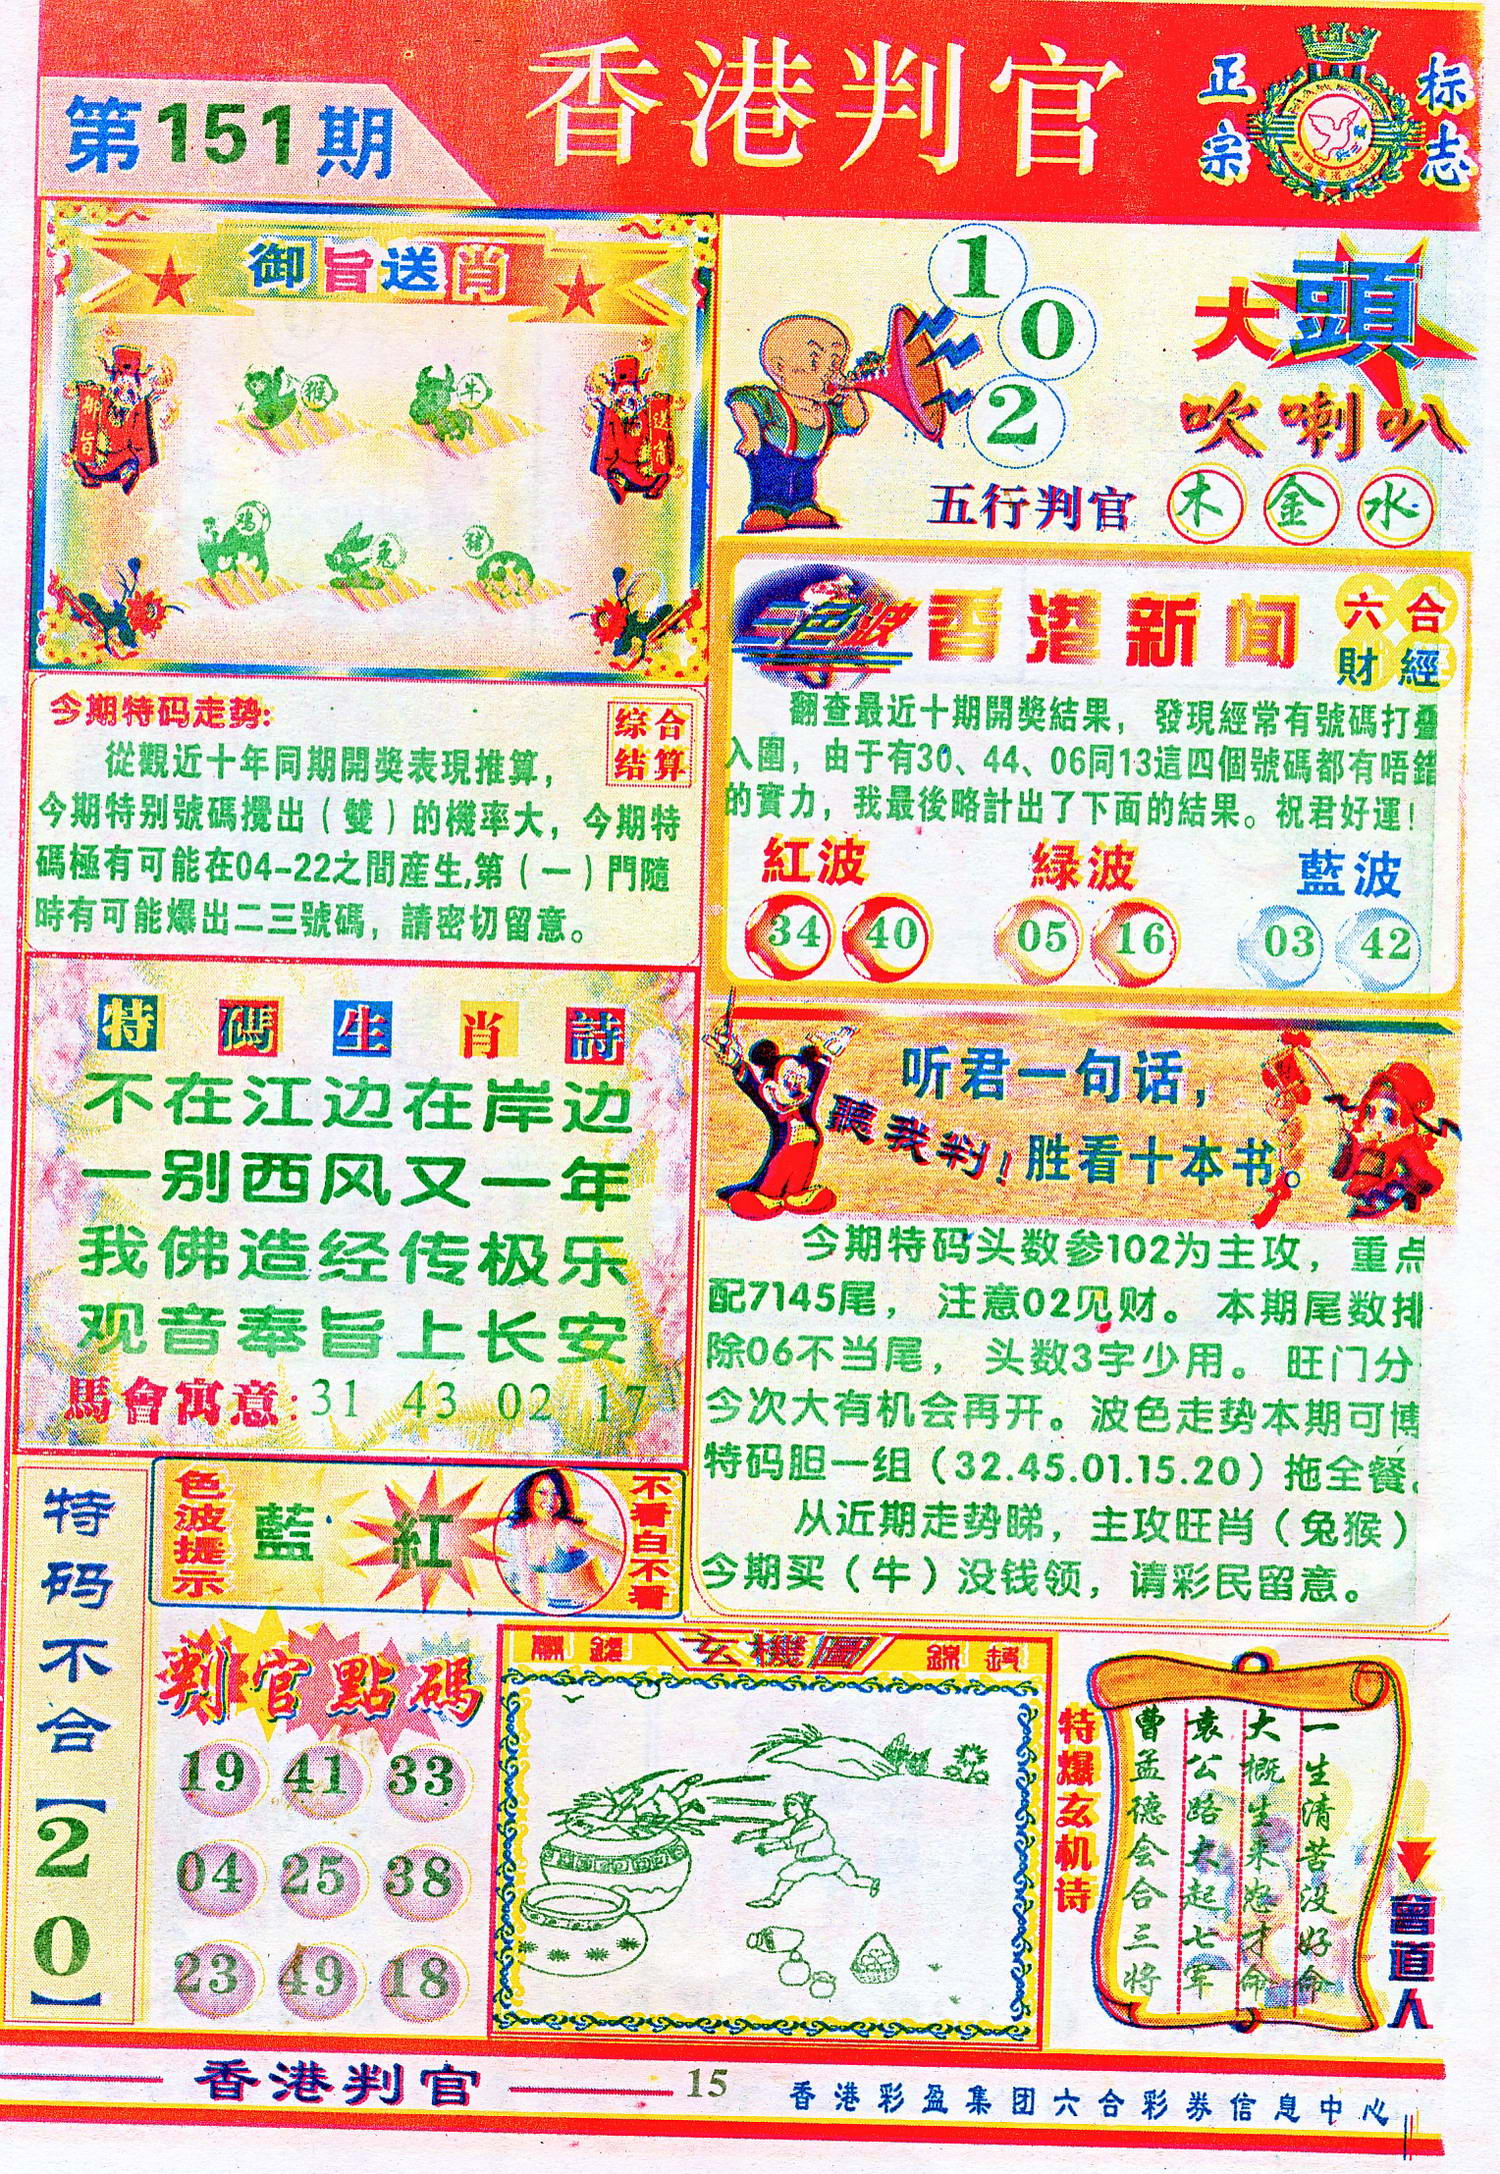 第151期
香港判官
正宗
标志
御旨送肖
御旨
送肖
猴
牛
鸡
兔
猪
1
0
2
大頭
吹喇叭
五行判官 木 金 水
今期特码走势:
综合
结算
從觀近十年同期開獎表現推算,
今期特别號碼攪出(雙)的機率大,今期特
碼極有可能在04-22之間産生,第(一)門隨
時有可能爆出二三號碼,請密切留意。
三色波
香港新闻
六合
財經
翻查最近十期開獎結果,發現經常有號碼打疊
入圍,由于有30、44、06同13這四個號碼都有唔錯
的實力,我最後略計出了下面的結果。祝君好運!
紅波 緑波 藍波
34 40 05 16 03 42
特碼生肖詩
不在江边在岸边
一别西风又一年
我佛造经传极乐
观音奉旨上长安
馬會寓意:31 43 02 17
听君一句话,
聽我判!
胜看十本书。
今期特码头数参102为主攻,重点
配7145尾,注意02见财。本期尾数排
除06不当尾,头数3字少用。旺门分
今次大有机会再开。波色走势本期可博
特码胆一组(32.45.01.15.20)拖全餐。
从近期走势睇,主攻旺肖(兔猴)
今期买(牛)没钱领,请彩民留意。
特码不合【20】
色波提示
藍 紅
不看白不看
判官點碼
19 41 33
04 25 38
23 49 18
玄機圖
特爆玄机诗
一生清苦没好命
大概生来怨才命
袁公路大起七军
曹孟德会合三将
曾道人
香港判官
15
香港彩盈集团六合彩券信息中心